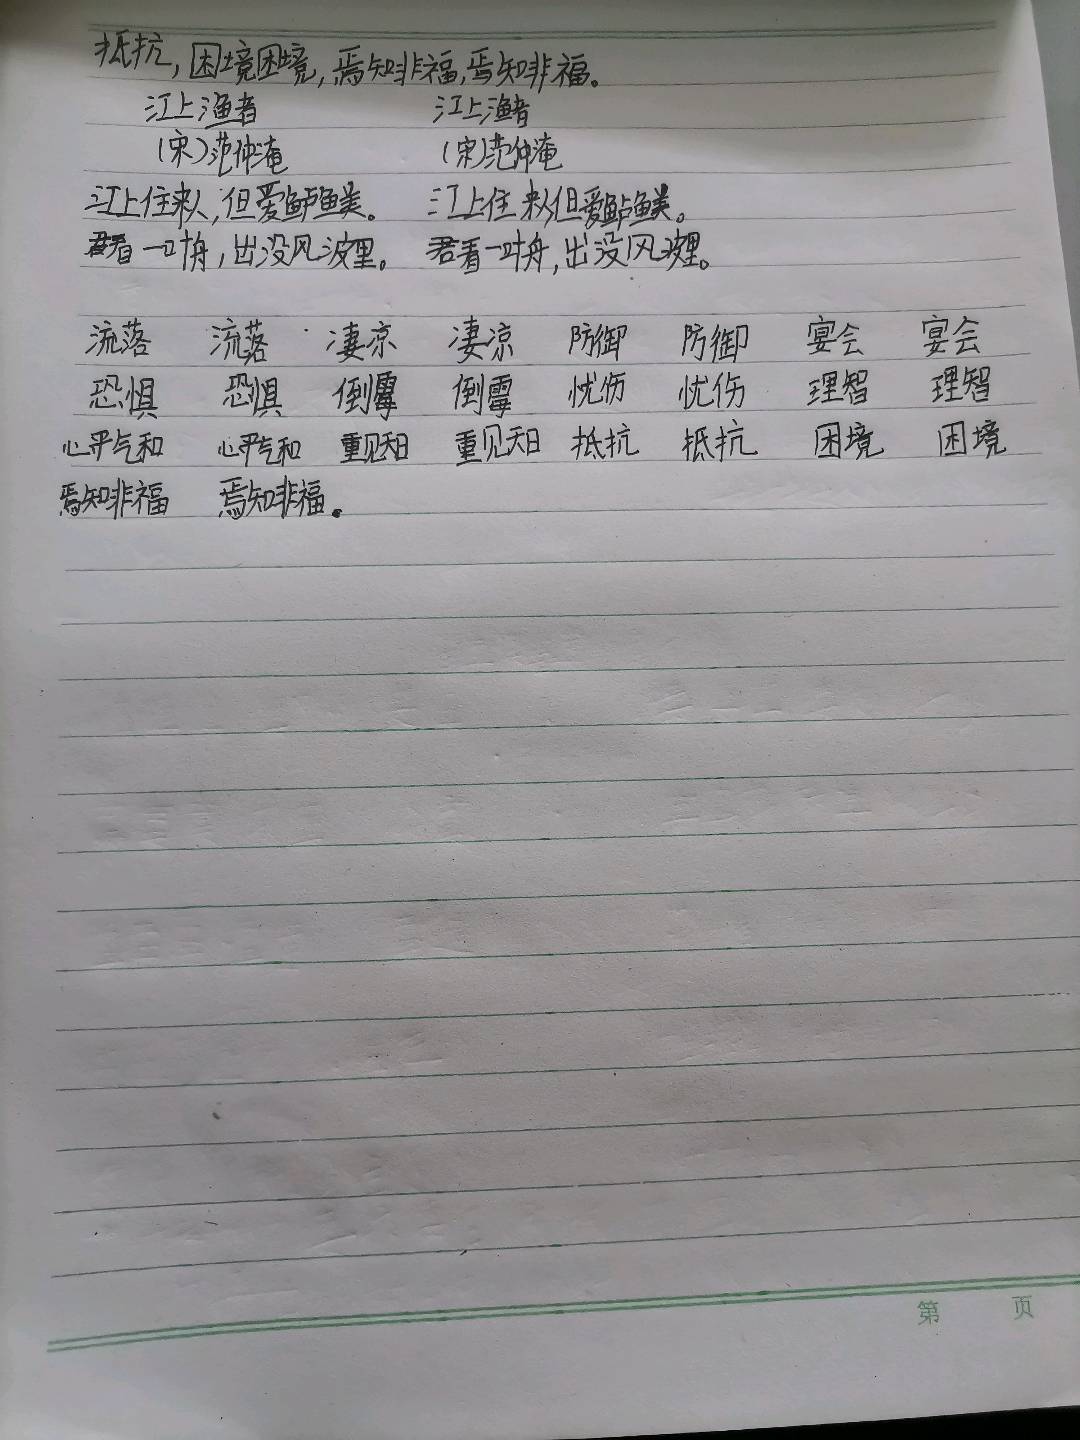 抵抗,困境困境,焉知非福,焉知非福。
江上渔者 江上渔者
(宋)范仲淹 (宋)范仲淹
江上住来人,但爱鲈鱼美。 江上住来人但爱鲈鱼美。
君看一叶舟,出没风波里。 君看一叶舟,出没风波里。
流落 流落 凄凉 凄凉 防御 防御 宴会 宴会
恐惧 恐惧 倒霉 倒霉 忧伤 忧伤 理智 理智
心平气和 心平气和 重见天日 重见天日 抵抗 抵抗 困境 困境
焉知非福 焉知非福。
第 页